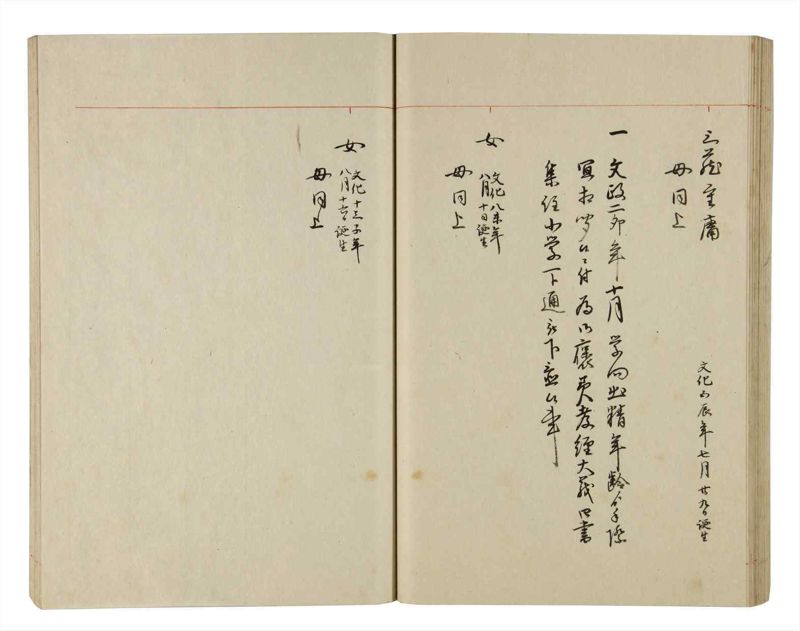 三蔵重庸
文化五辰年七月廿九日誕生
母同上
一 文政二卯年十月学問出精年齢ゟ手際
宜相聞候ニ付為御褒美孝経大義四書
集註小学一ト通被下置候事
女
文化八未年
八月十日誕生
母同上
女
文化十三子年
八月十六日誕生
母同上